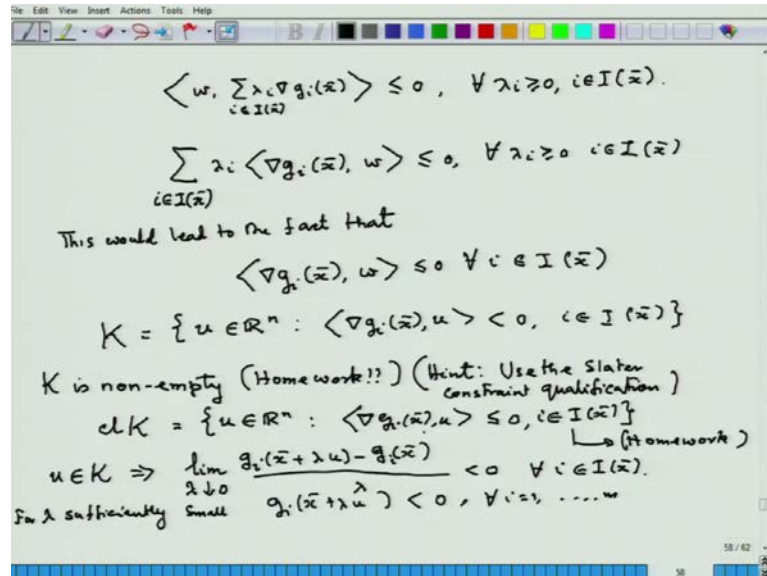 File Edit View Insert Actions Tools Help
B I
⟨w, ∑_{i∈I(x̄)} λ_i ∇g_i(x̄)⟩ ≤ 0, ∀ λ_i ≥ 0, i∈I(x̄).
∑_{i∈I(x̄)} λ_i ⟨∇g_i(x̄), w⟩ ≤ 0, ∀ λ_i ≥ 0 i∈I(x̄)
This would lead to the fact that
⟨∇g_i(x̄), w⟩ ≤ 0 ∀ i ∈ I(x̄)
K = {u ∈ ℝⁿ : ⟨∇g_i(x̄), u⟩ < 0, i∈I(x̄)}
K is non-empty (Homework!!) (Hint: Use the Slater
constraint qualification)
cl K = {u∈ℝⁿ : ⟨∇g_i(x̄), u⟩ ≤ 0, i∈I(x̄)}
↳ (Homework)
u∈K ⇒ lim_{λ↓0} (g_i(x̄+λu) - g_i(x̄))/λ < 0 ∀ i∈I(x̄).
For λ sufficiently small g_i(x̄+λu) < 0, ∀ i=1, .....m
58/62
58